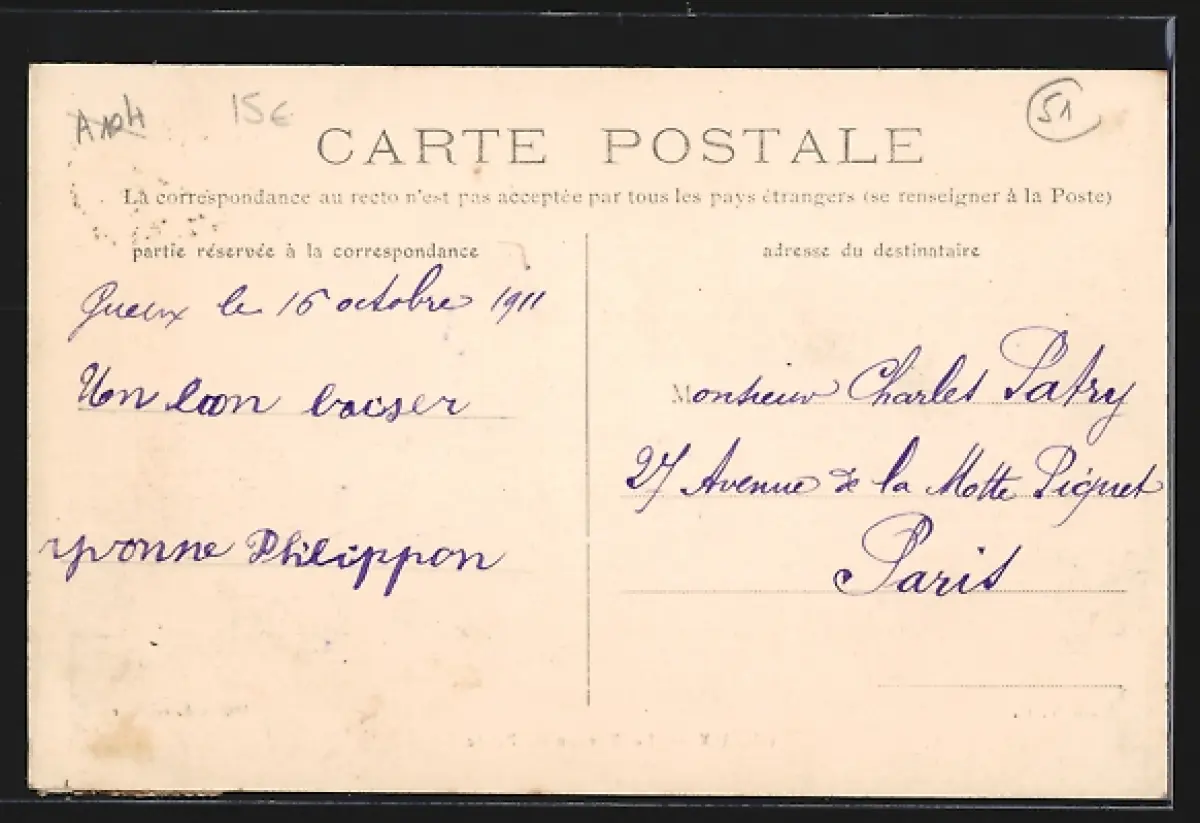 15€
51
CARTE POSTALE
La correspondance au recto n'est pas acceptée par tous les pays étrangers (se renseigner à la Poste)
partie réservée à la correspondance
adresse du destinataire
Gueux le 16 octobre 1911
Un bon baiser
yvonne Philippon
Monsieur Charles Patry
27 Avenue de la Motte Piquet
Paris